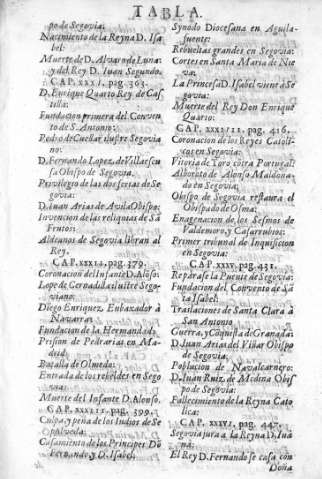 TABLA.
po de Segovia:
Nacimiento de la Reyna D. Isa
bel:
Muerte de D. Alvaro de Luna
y del Rey D. Iuan Segundo.
CAP. XXXI. pag. 363.
D. Enrique Quarto Rey de Cas
tilla:
Fundacion primera del Conven
to de S. Antonio:
Pedro de Cuellar ilustre Segovia
no:
D. Fernando Lopez de Villaescu
sa Obispo de Segovia.
Privilegio de las dos ferias de Se
govia:
D. Iuan Arias de Avila Obispo:
Invencion de las reliquias de Sā
Frutos:
Aldeanos de Segovia libran al
Rey.
CAP. XXXII. pag. 379.
Coronacion del Infante D. Alōso:
Lope de Cernadilla ilustre Sego
viano:
Diego Enriquez, Enbaxador à
Navarra:
Fundacion de la Hermandad:
Prision de Pedrarias en Ma
drid:
Batalla de Olmedo:
Entrada de los rebeldes en Sego
via:
Muerte del Infante D. Alonso.
CAP. XXXIII. pag. 399.
Culpa, y pena de los Iudios de Se
pulveda:
Casamiento de los Principes Dō
Fernando y D. Isabel:
Synodo Diocesana en Aguila-
fuente:
Rebueltas grandes en Segovia:
Cortes en Santa Maria de Nie
va:
La Princesa D. Isabel viene à Se
govia:
Muerte del Rey Don Enrique
Quarto:
CAP. XXXIIII. pag. 416.
Coronacion de los Reyes Catoli-
cos en Segovia:
Vitoria de Toro cōtra Portugal:
Alboroto de Alonso Maldona-
do en Segovia:
Obispo de Segovia restaura el
Obispado de Osma:
Enagenacion de los Sesmos de
Valdemoro, y Casarrubios:
Primer tribunal de Inquisicion
en Segovia:
CAP. XXXV. pag. 431.
Repara se la Puente de Segovia:
Fundacion del Convento de Sā
ta Isabel:
Traslaciones de Santa Clara à
San Antonio
Guerra, y Cōquista de Granada:
D. Iuan Arias del Villar Obispo
de Segovia:
Poblacion de Navalcarnero:
D. Iuan Ruiz de Medina Obis
po de Segovia:
Fallecimiento de la Reyna Ca
tolica:
CAP. XXXVI. pag. 447.
Segovia jura a la Reyna D. Iua
na:
El Rey D. Fernando se casa con
Doña